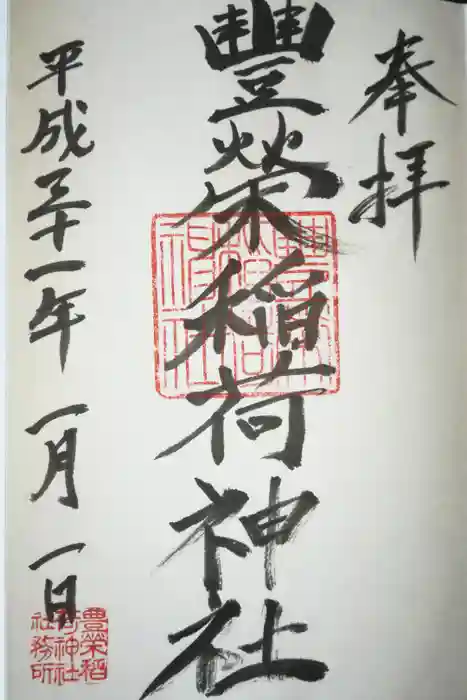 奉拝
豐榮稲荷神社
平成三十一年一月一日
豊榮稲
荷神社
社務所